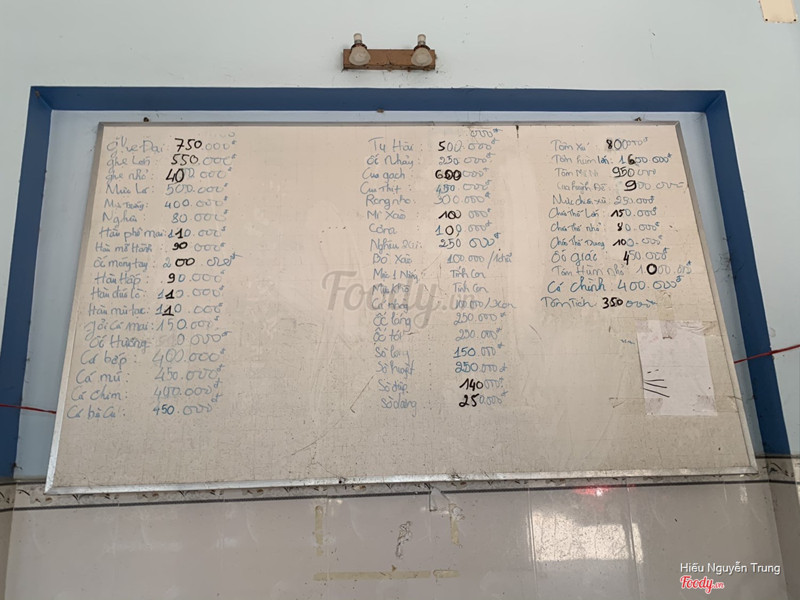 Ghẹ Đại : 750.000đ
Ghẹ Lớn : 550.000đ
Ghẹ nhỏ : 400.000đ
Mực Lá : 500.000đ
Mực trứng : 400.000đ
Nghêu : 80.000đ
Hàu phô mai : 110.000đ
Hàu mỡ Hành : 90.000đ
Ốc móng tay : 200.000đ
Hàu Hấp : 90.000đ
110.000đ
110.000đ
Gỏi Cá mai : 150.000đ
Ốc Hương : 000đ
Cá bớp : 400.000đ
Cá mú : 450.000đ
Cá chim : 400.000đ
Cá bò Cu : 450.000đ
000đ
Tu Hài : 500.000đ
Ốc Nhảy : 250.000đ
Cua gạch : 600.000đ
Cua Thịt : 450.000đ
Rong nho : 300.000đ
Mì Xào : 100.000đ
100.000đ
Nghêu 2 cồi : 250.000đ
Bò Xào : 100.000/1dĩa
Mực 1 Nắng : Tính Con
Mực Khô : Tính Con
100.000/1con
Ốc láng : 250.000đ
Ốc tỏi : 250.000đ
Sò lông : 150.000đ
Sò huyết : 250.000đ
Sò điệp : 140.000đ
Sò dương : 250.000đ
Tôm Xú : 800.000đ
Tôm hùm lớn : 1600.000đ
950.000đ
Cua huỳnh Đế : 900.000đ
250.000đ
150.000đ
80.000đ
100.000đ
Sò giấc : 450.000đ
Tôm Hùm nhỏ : 1000.000đ
Cá Chình : 400.000đ
Tôm Tích : 350.000đ
Foody.vn
Hiếu Nguyễn Trung
Foody.vn